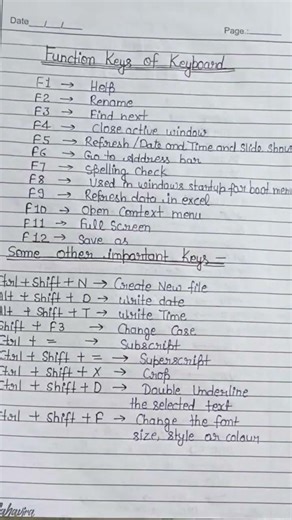 Date / /
Page:
Function Keys of Keyboard
F1 → Help
F2 → Rename
F3 → Find next
F4 → Close active window
F5 → Refresh/Date and Time and Slide show
F6 → Go to address bar
F7 → Spelling Check
F8 → Used in windows startup for boot menu
F9 → Refresh data in excel
F10 → Open Context menu
F11 → Full Screen
F12 → Save as
Some other important Keys =
Ctrl + Shift + N → Create New file
Alt + Shift + D → Write date
Alt + Shift + T → Write Time
Shift + F3 → Change Case
Ctrl + = → Subscript
Ctrl + Shift + = → Superscript
Ctrl + Shift + X → Crop
Ctrl + Shift + D → Double Underline
the selected text
Ctrl + Shift + F → Change the font
size, style or colour